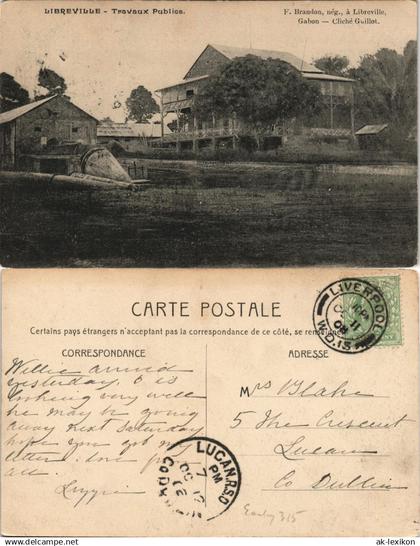 LIBREVILLE - Travaux Publics.
F. Brandon, nég., à Libreville,
Gabon - Cliché Guillot.
CARTE POSTALE
Certains pays étrangers n'acceptant pas la correspondance de ce côté, se renseigner
CORRESPONDANCE
ADRESSE
Willie arrived
yesterday, & is
looking very well
he may be going
away next Saturday
hope you got my
letter. love for
all.
Mrs Blake
5 The Crescent
Lucan
Co Dublin
LIVERPOOL
W.D.13
LUCAN.R.S.O
7 PM
Early 315
ak-lexikon.com